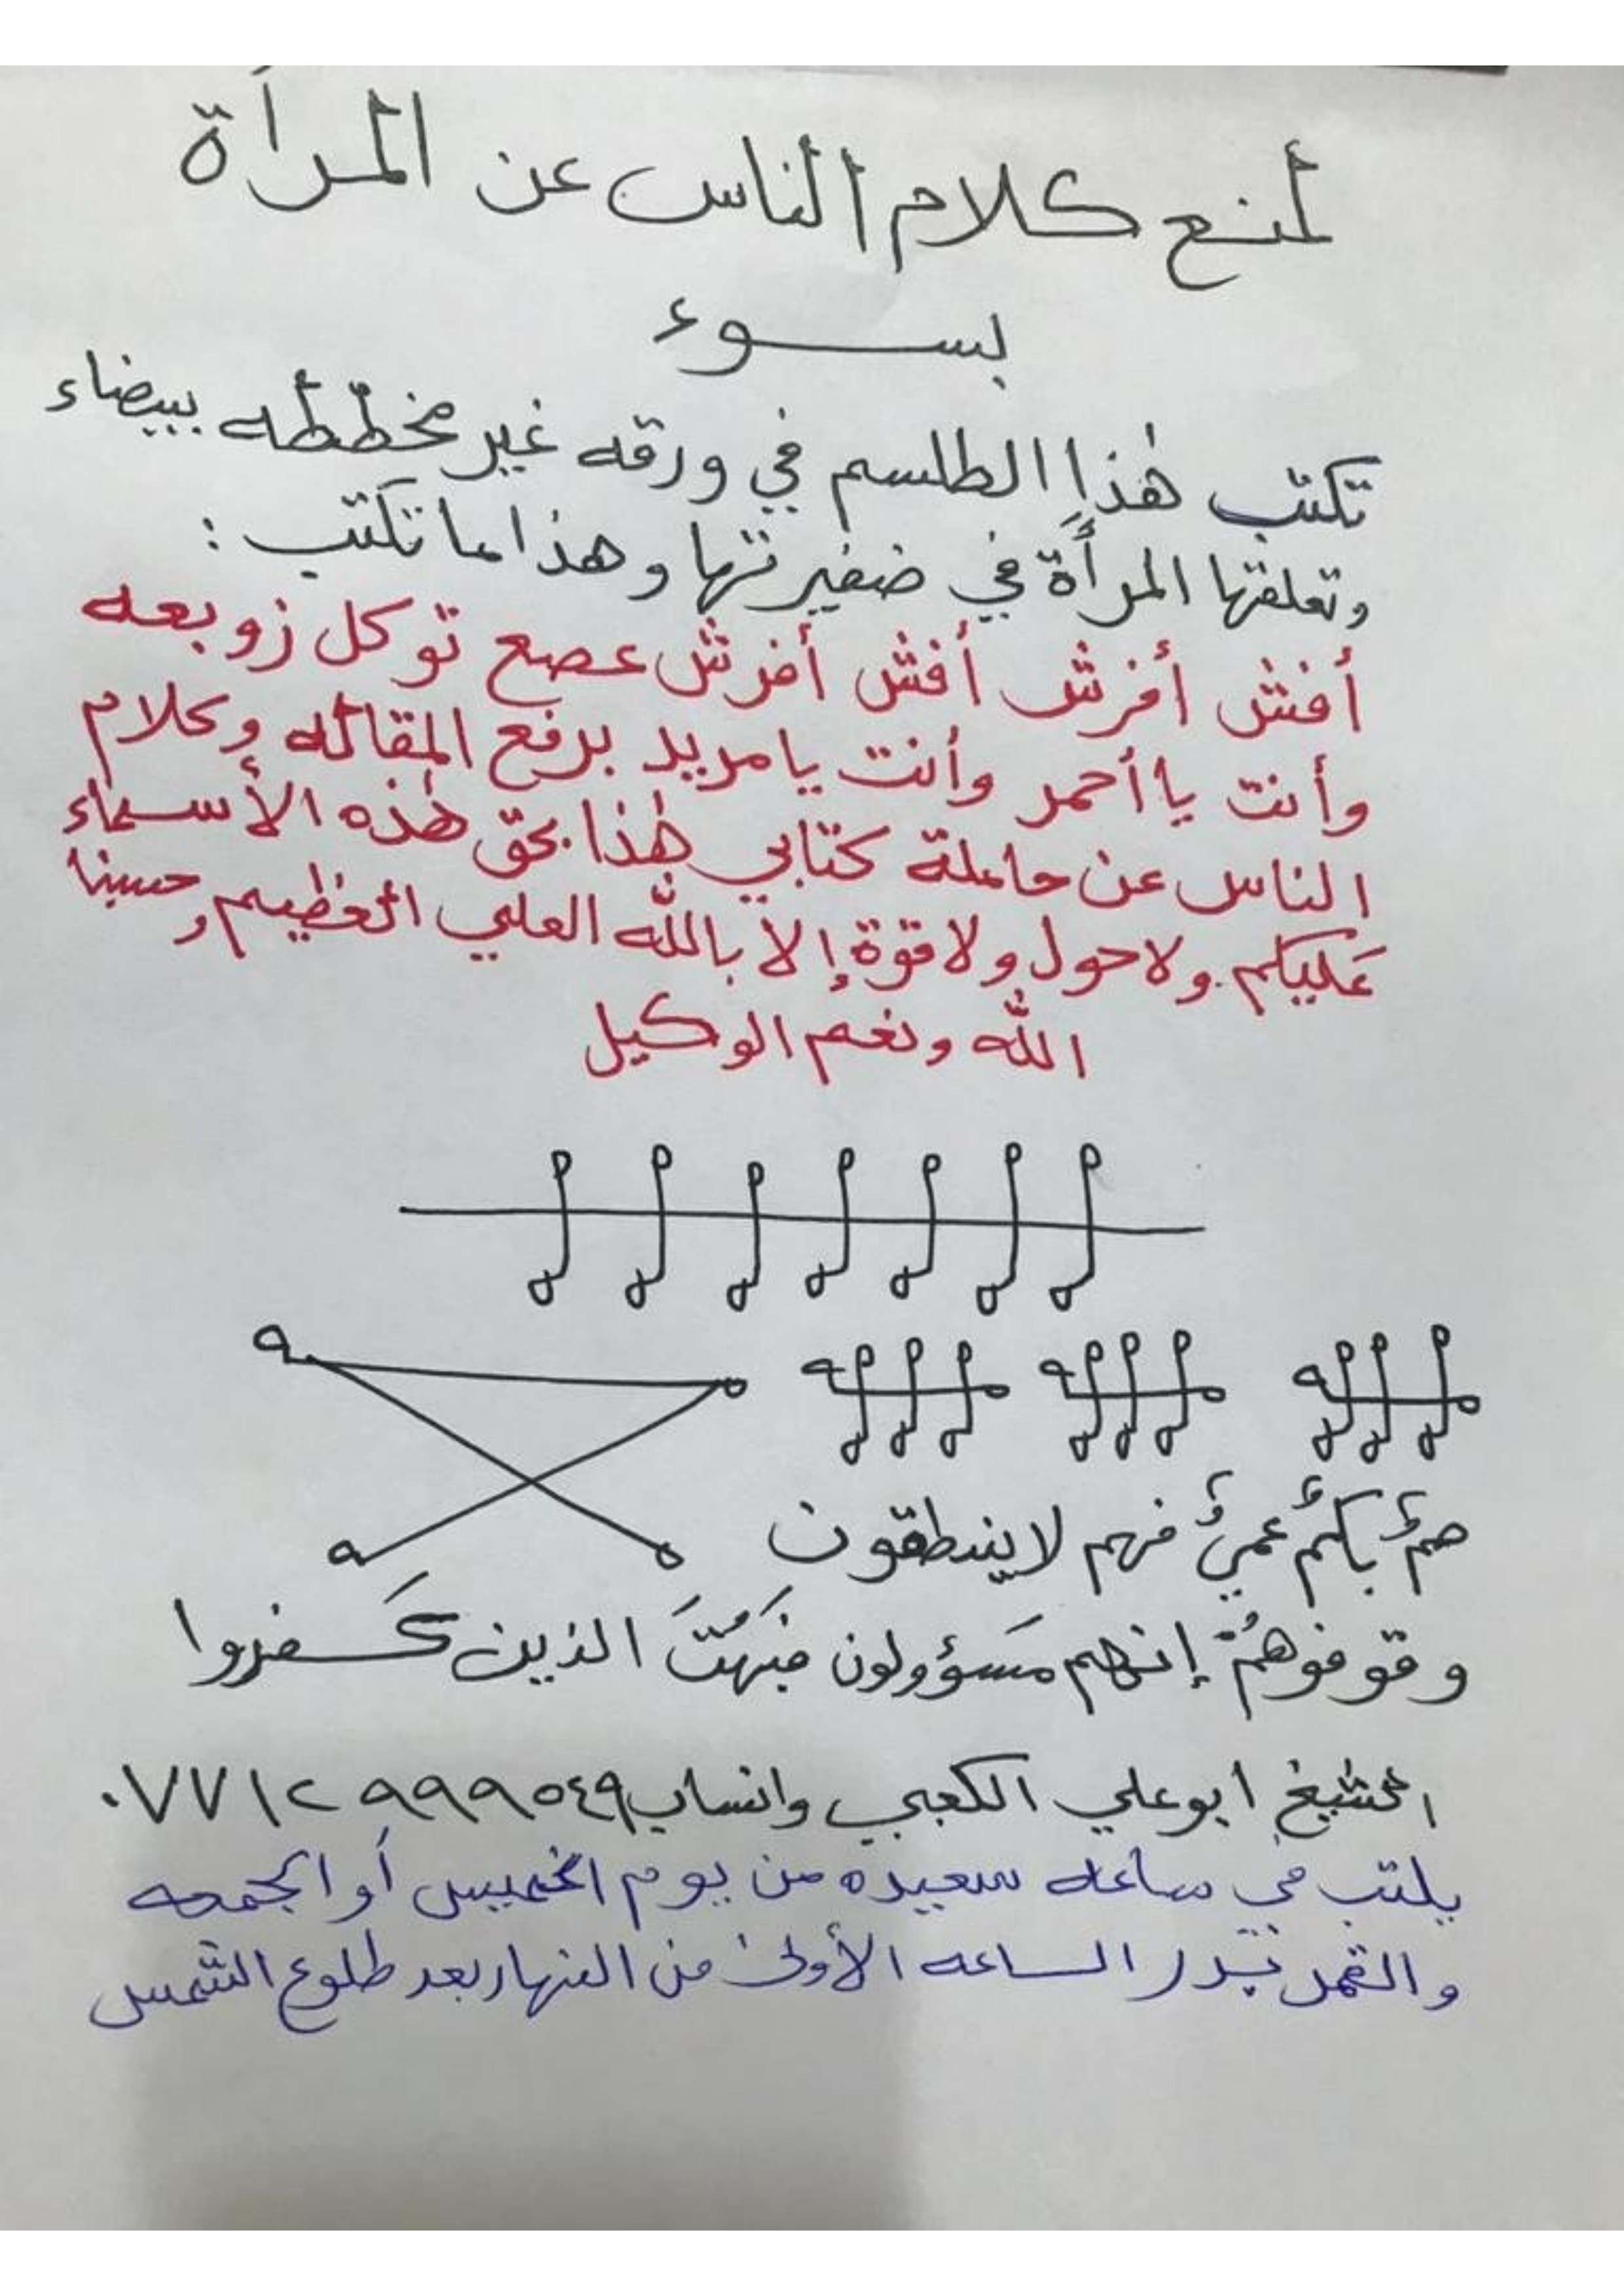 لمنع كلام الناس عن المرأة
بسوء
تكتب هٰذا الطلسم في ورقه غير مخططه بيضاء
وتعلقها المرأة في ضفيرتها وهذا ما تكتب :
أفش أفرش أفش أفرش عصع توكل زوبعه
وأنت يا أحمر وأنت يا مريد برفع المقاله وكلام
الناس عن حاملة كتابي هٰذا بحق هٰذه الأسماء
عَليكم. ولا حول ولا قوة إلا بالله العلي العظيم وحسبنا
الله ونعم الوكيل
صمٌ بكمٌ عميٌ فهم لا ينطقون
وقوفوهُمْ إنهم مَسؤولون فبَهُتَ الذين كَفروا
الشيخ ابو علي الكعبي واتساب ٠٧٧١٢٩٩٩٥٤٩
يكتب في ساعه سعيده من يوم الخميس أو الجمعه
والقمر بدر الساعه الأولى من النهار بعد طلوع الشمس